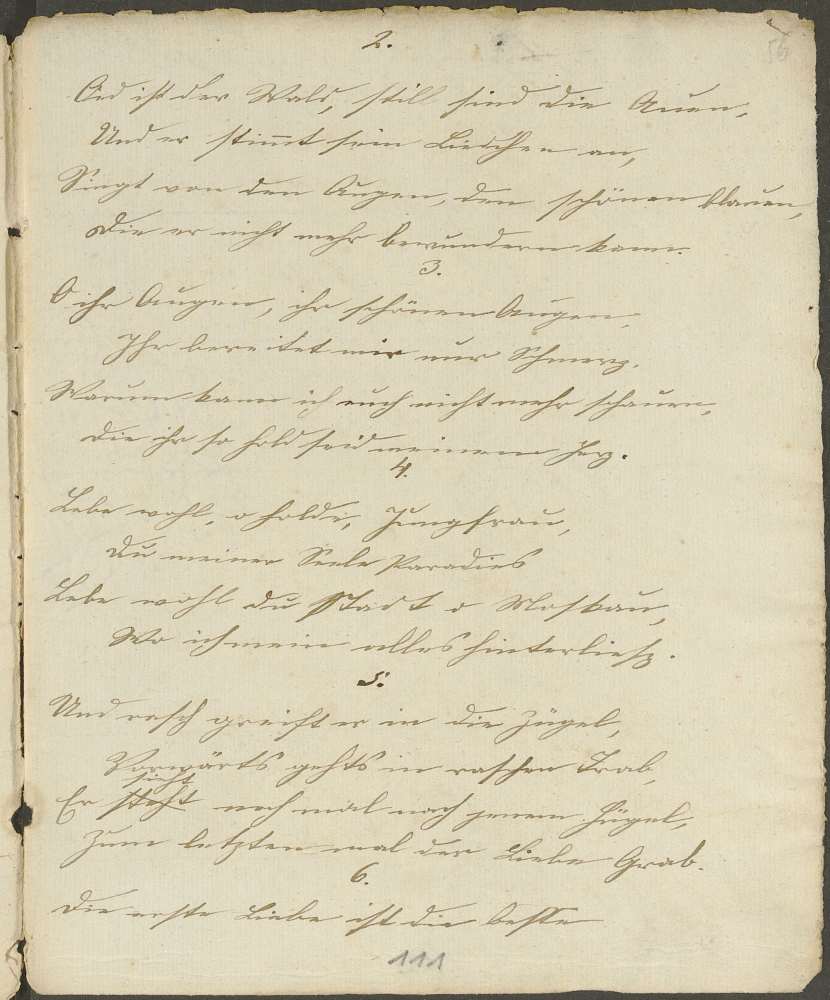 2.
56
Öd ist der Wald, still sind die Auen,
Und er stimmt sein Liedchen an,
Singt von den Augen, den schönen blauen,
Die er nicht mehr bewundern kann.
3.
O ihr Augen, ihr schönen Augen,
Ihr bereitet mir nur Schmerz.
Warum kann ich euch nicht mehr schauen,
Die ihr so hold seid meinem Herz.
4.
Lebe wohl, o holde, Jungfrau,
Du meiner Seele Paradies
Lebe wohl du Stadt o Moskau,
Wo ich mein alles hinterliesz.
5.
Und rasch greift er in die Zügel,
Vorwärts gehts in raschen Trab,
sieht
Er steht noch mal nach jenem Hügel,
Zum letzten mal der Liebe Grab.
6.
Die erste Liebe ist die beste
111